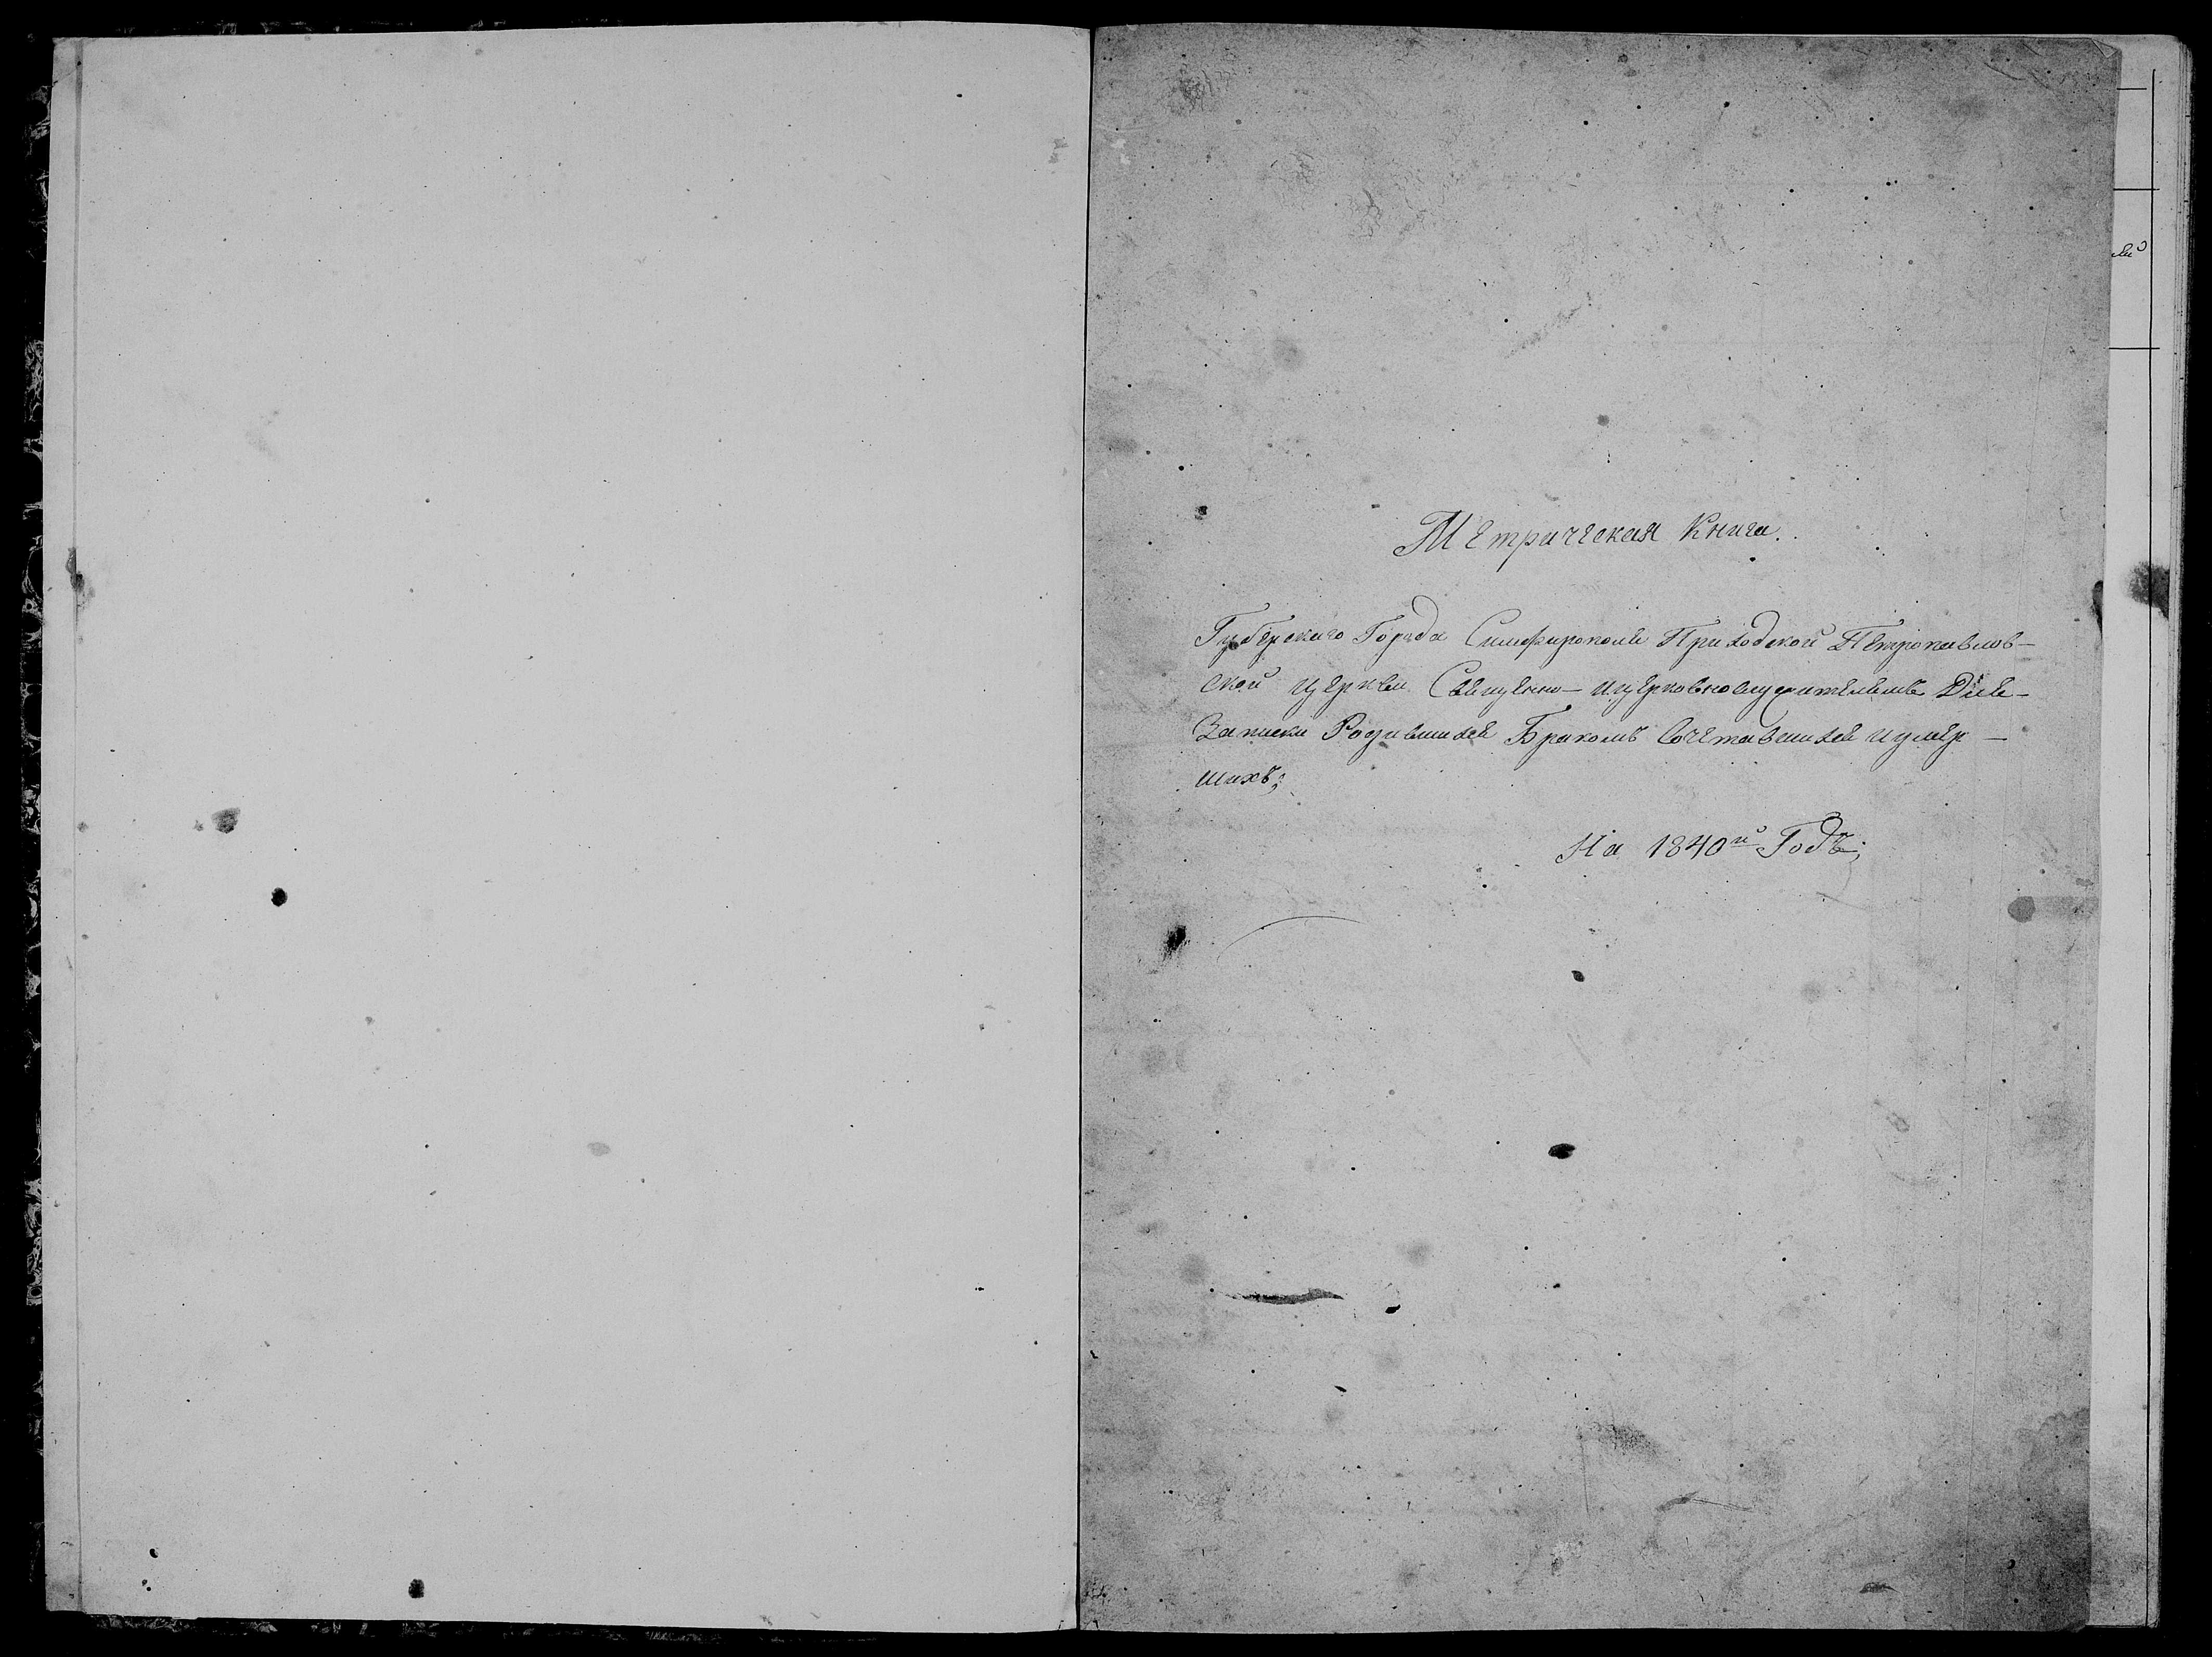 Метрическая Книга.
Губерскаго Города Симферополя Приходской Петропавлов-
ской церкви Священно- ицерковнослужителямъ Для-
Записки Родившихся Бракомъ Сочетавшихся иумер-
шихъ;
На 1840й Годъ;